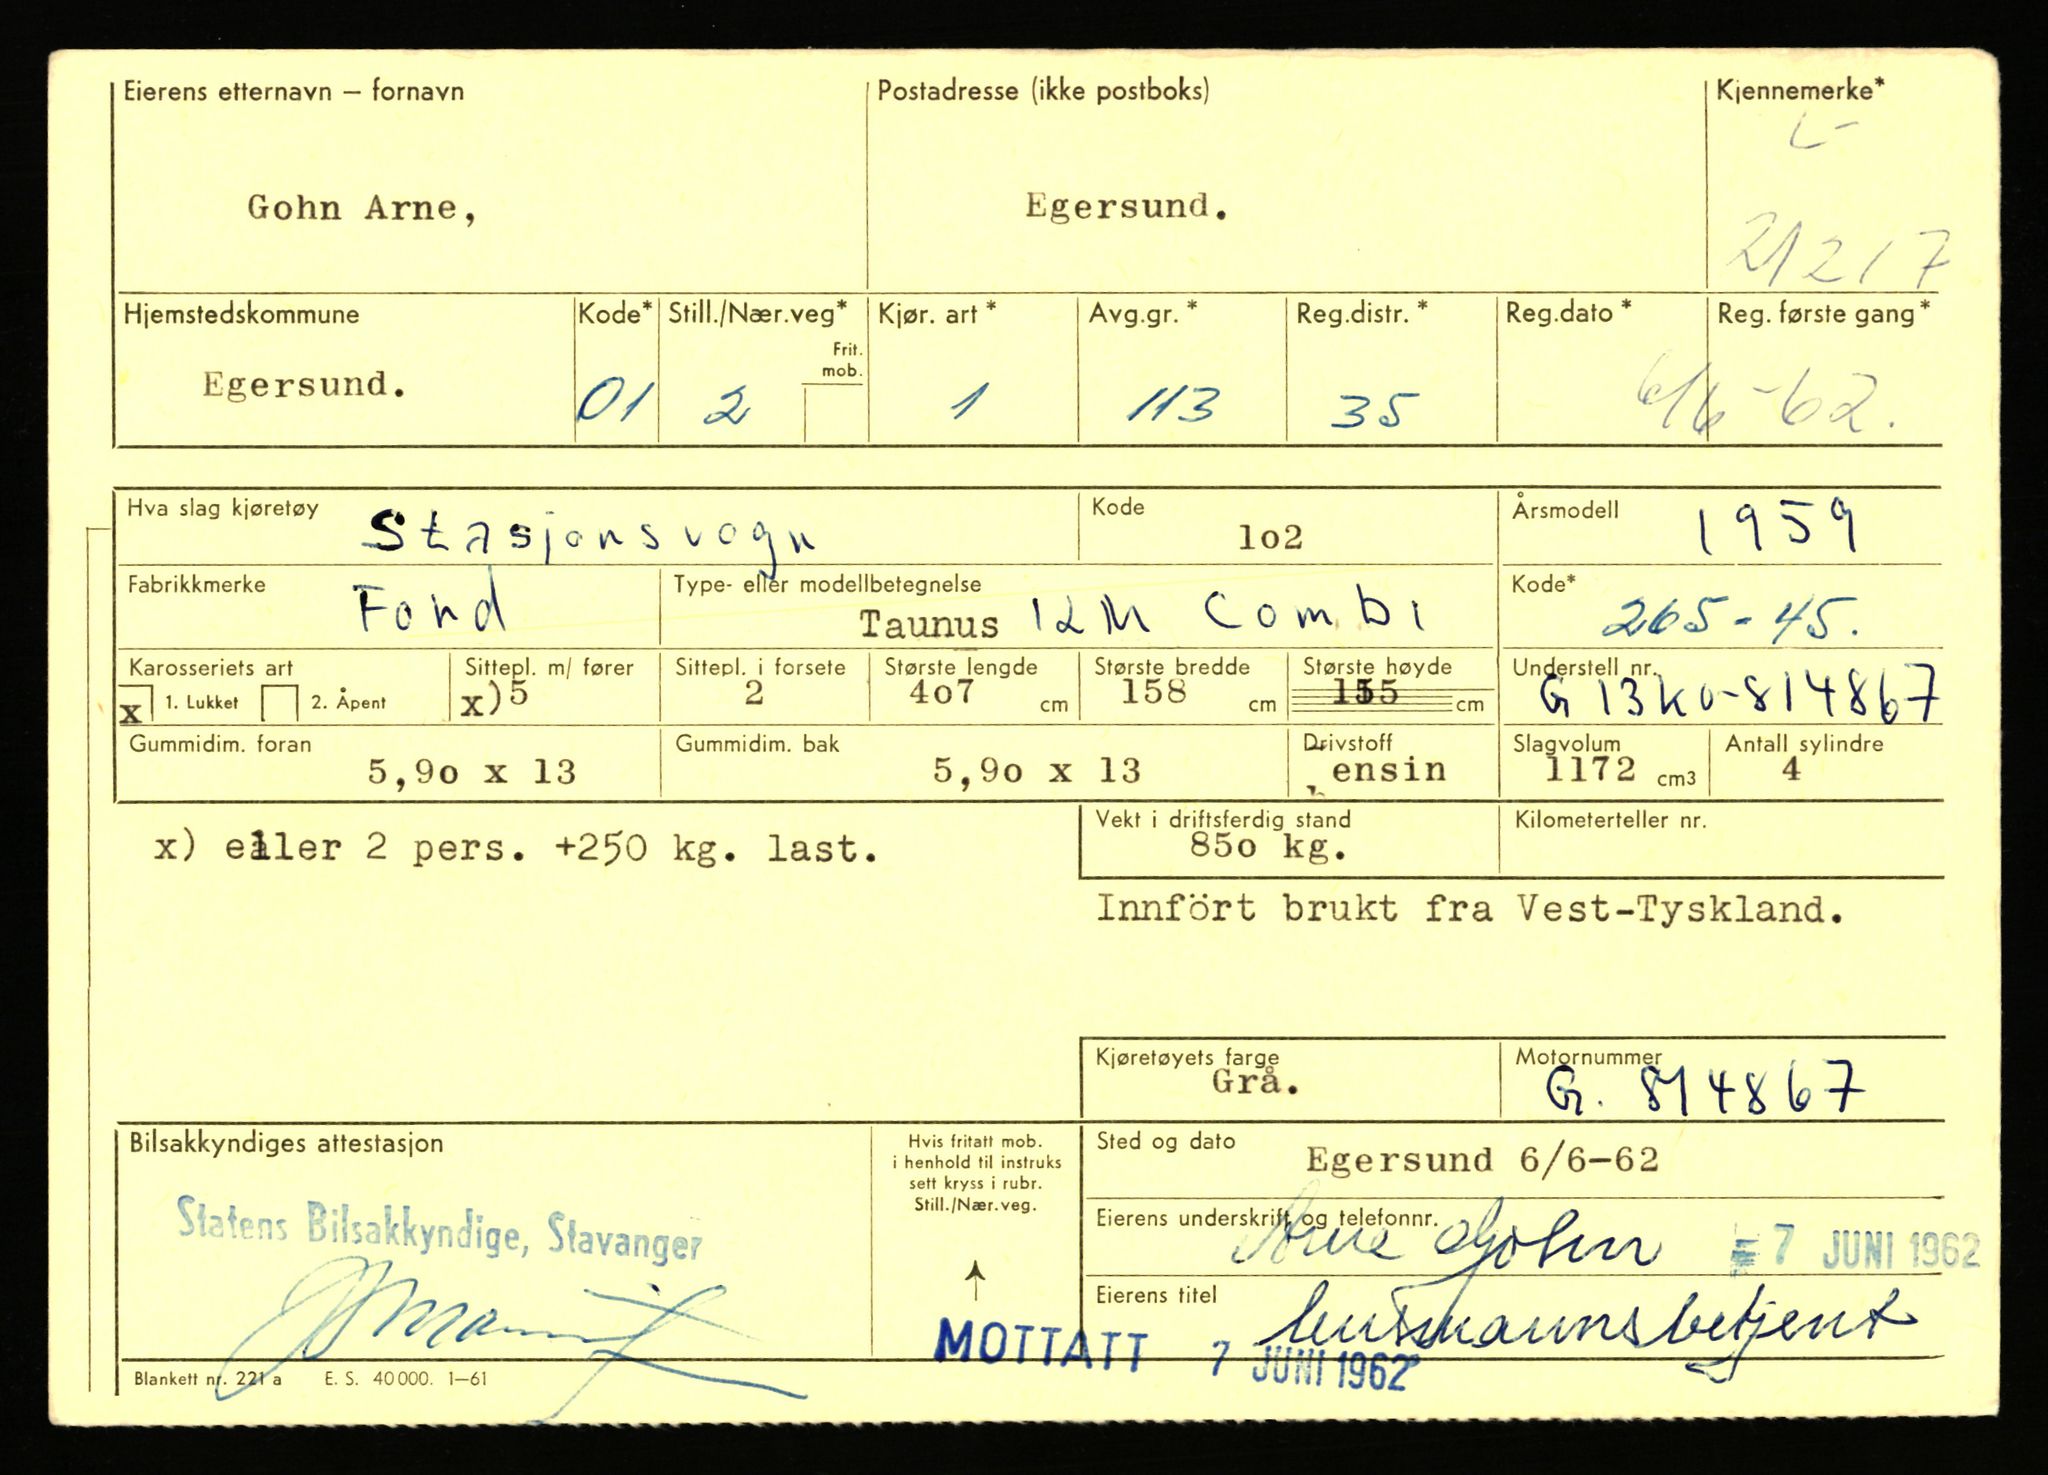 Eierens etternavn – fornavn Postadresse (ikke postboks) Kjennemerke*
L-
Gohn Arne, Egersund.
21217
Hjemstedskommune Kode* Still./Nær.veg* Kjør. art * Avg.gr. * Reg.distr. * Reg.dato * Reg. første gang*
Frit.
mob.
Egersund. 01 2 1 113 35 6/6-62.
Hva slag kjøretøy Stasjonsvogn Kode 1o2 Årsmodell 1959
Fabrikkmerke Ford Type- eller modellbetegnelse Taunus 12M Combi Kode* 265-45.
Karosseriets art Sittepl. m/ fører Sittepl. i forsete Største lengde Største bredde Største høyde Understell nr.
x 1. Lukket 2. Åpent x) 5 2 4o7 cm 158 cm 155 cm G13KU-814867
Gummidim. foran Gummidim. bak Drivstoff Slagvolum Antall sylindre
5,9o x 13 5,9o x 13 bensin 1172 cm3 4
Vekt i driftsferdig stand Kilometerteller nr.
x) eller 2 pers. +250 kg. last. 85o kg.
Innfört brukt fra Vest-Tyskland.
Kjøretøyets farge Motornummer
Grå. G. 814867
Bilsakkyndiges attestasjon
Hvis fritatt mob.
i henhold til instruks
sett kryss i rubr.
Still./Nær.veg.
Sted og dato Egersund 6/6-62
Statens Bilsakkyndige, Stavanger
Eierens underskrift og telefonnr.
Arne Gohn 7 JUNI 1962
Eierens titel lensmannsbetjent
MOTTATT 7 JUNI 1962
Blankett nr. 221 a E. S. 40 000. 1–61